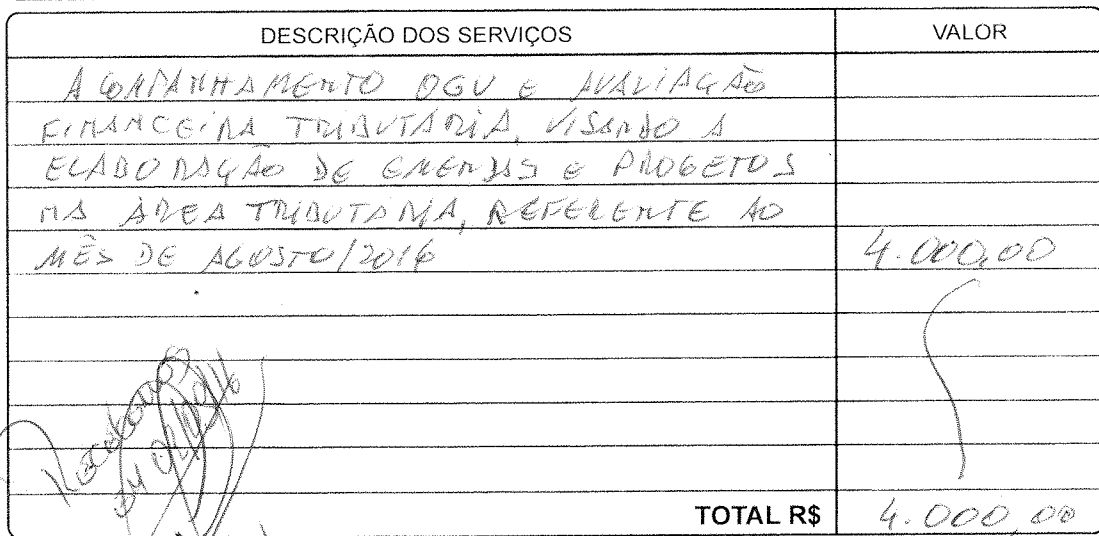 DESCRIÇÃO DOS SERVIÇOS VALOR
ACOMPANHAMENTO OGU E AVALIAÇÃO
FINANCEIRA TRIBUTÁRIA, VISANDO A
ELABORAÇÃO DE EMENDAS E PROGETOS
NA ÁREA TRIBUTÁRIA, REFERENTE AO
MÊS DE AGOSTO/2016 4.000,00
Recebemos
em
TOTAL R$ 4.000,00